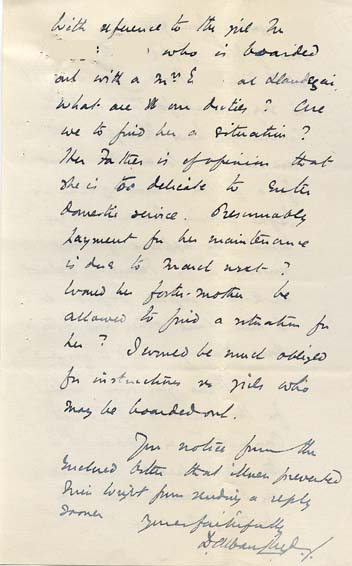 With reference to the girl
who is boarded
out with a Mrs E at
What are our duties? Are
we to find her a situation?
Her Father is of opinion that
she is too delicate to enter
domestic service. Presumably
payment for her maintenance
is due to March next?
Would her foster-mother be
allowed to find a situation for
her? I would be much obliged
for instructions re girls who
may be boarded out.
You notice from the
enclosed letter that illness prevented
Miss Wright from sending a reply
sooner
Yours faithfully